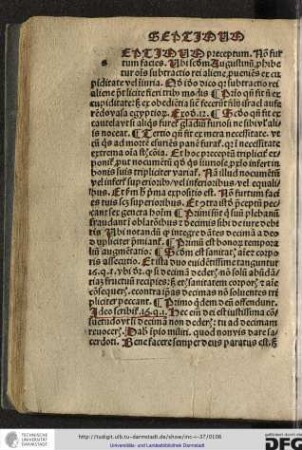 SEPTIMUM
EPTIMUM preceptum. Nõ fur
tum facies. Ubi scďm Augustinũ, phibe
tur oĩs subtractio rei aliene, pueniẽs ex cu
piditate vel iniuria. Qď iõo dico qr subtractio rei
aliene pt licite fieri trib⁹ modis Primo qñ fit nõ ex
cupiditate: sz ex obediẽtia sic̃ fecerũt filii israel aufe
rẽdo vasa egyptior̃. Exo. 12. Scďo qñ fit ex
cautela vt si aliqs furet̃ gladiũ furiosi ne sibi vel ali
is noceat. Tertio qñ fit ex mera necessitate. vt
cũ qs ad mortẽ esuriẽs panẽ furat̃. qr in necessitate
extrema oĩa sũt cõia. Et hoc preceptũ triplicit̃ ex
ponit̃. put nocumẽtũ qď qs iniuste pximo infert in
bonis suis tripliciter variat̃. Nã illud nocumẽtũ
vel infert̃ superiorib⁹ vel inferiorib⁹ vel equali
bus. Et fm hͦ pma expositio est. Nõ furtum faci
es tuis scz superioribus. Et cõtra istď pceptũ pec
cant tria genera hoĩm Primi sũt qui suũ plebanũ
fraudãt in oblatiõibus et decimis sibi de iure debi
tis Ubi notandũ qr integre dãtes decimã a deo
dupliciter pmiant̃. Primũ est honor̃ tempora
liũ augmẽtatio: Scďm est sanitat̃ anie et corpo
ris assecutio. Et ista duo euidẽtissime tanguntur
16. q. 1. vbi di. qr si decimã deder̃. nõ solũ abũdã
tiã fructuũ recipies: sz et sanitatem corpor̃ et anie
cõsequer̃. econtra ipsas decimas nõ soluentes tri
pliciter peccant. Primo qdem deũ offendunt.
Ideo scribit̃ 16. q. 1. Hec em dei est iustissima cõ
suetudo vt si decimã non deder̃. tu ad decimam
reuocer̃. Dab̃ ipio militi. quod nonvis dare sa
cerdoti. Bene facere semper deus paratus est. sz
TECHNISCHE
UNIVERSITÄT
DARMSTADT
http://tudigit.ulb.tu-darmstadt.de/show/inc-ii-37/0108
Universitäts- und Landesbibliothek Darmstadt
Gefördert durch die
DFG